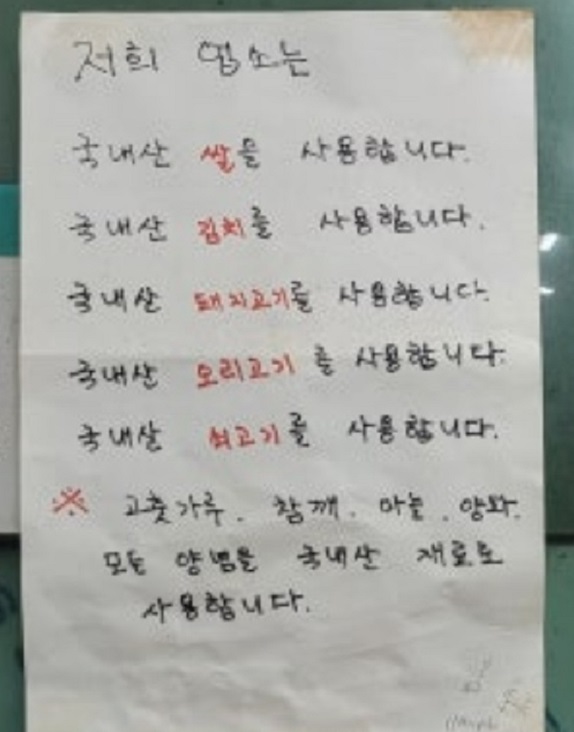 저희 업소는
국내산 쌀을 사용합니다.
국내산 김치를 사용합니다.
국내산 돼지고기를 사용합니다.
국내산 오리고기를 사용합니다.
국내산 쇠고기를 사용합니다.
※ 고춧가루. 참깨. 마늘. 양파.
모든 양념을 국내산 재료로
사용합니다.